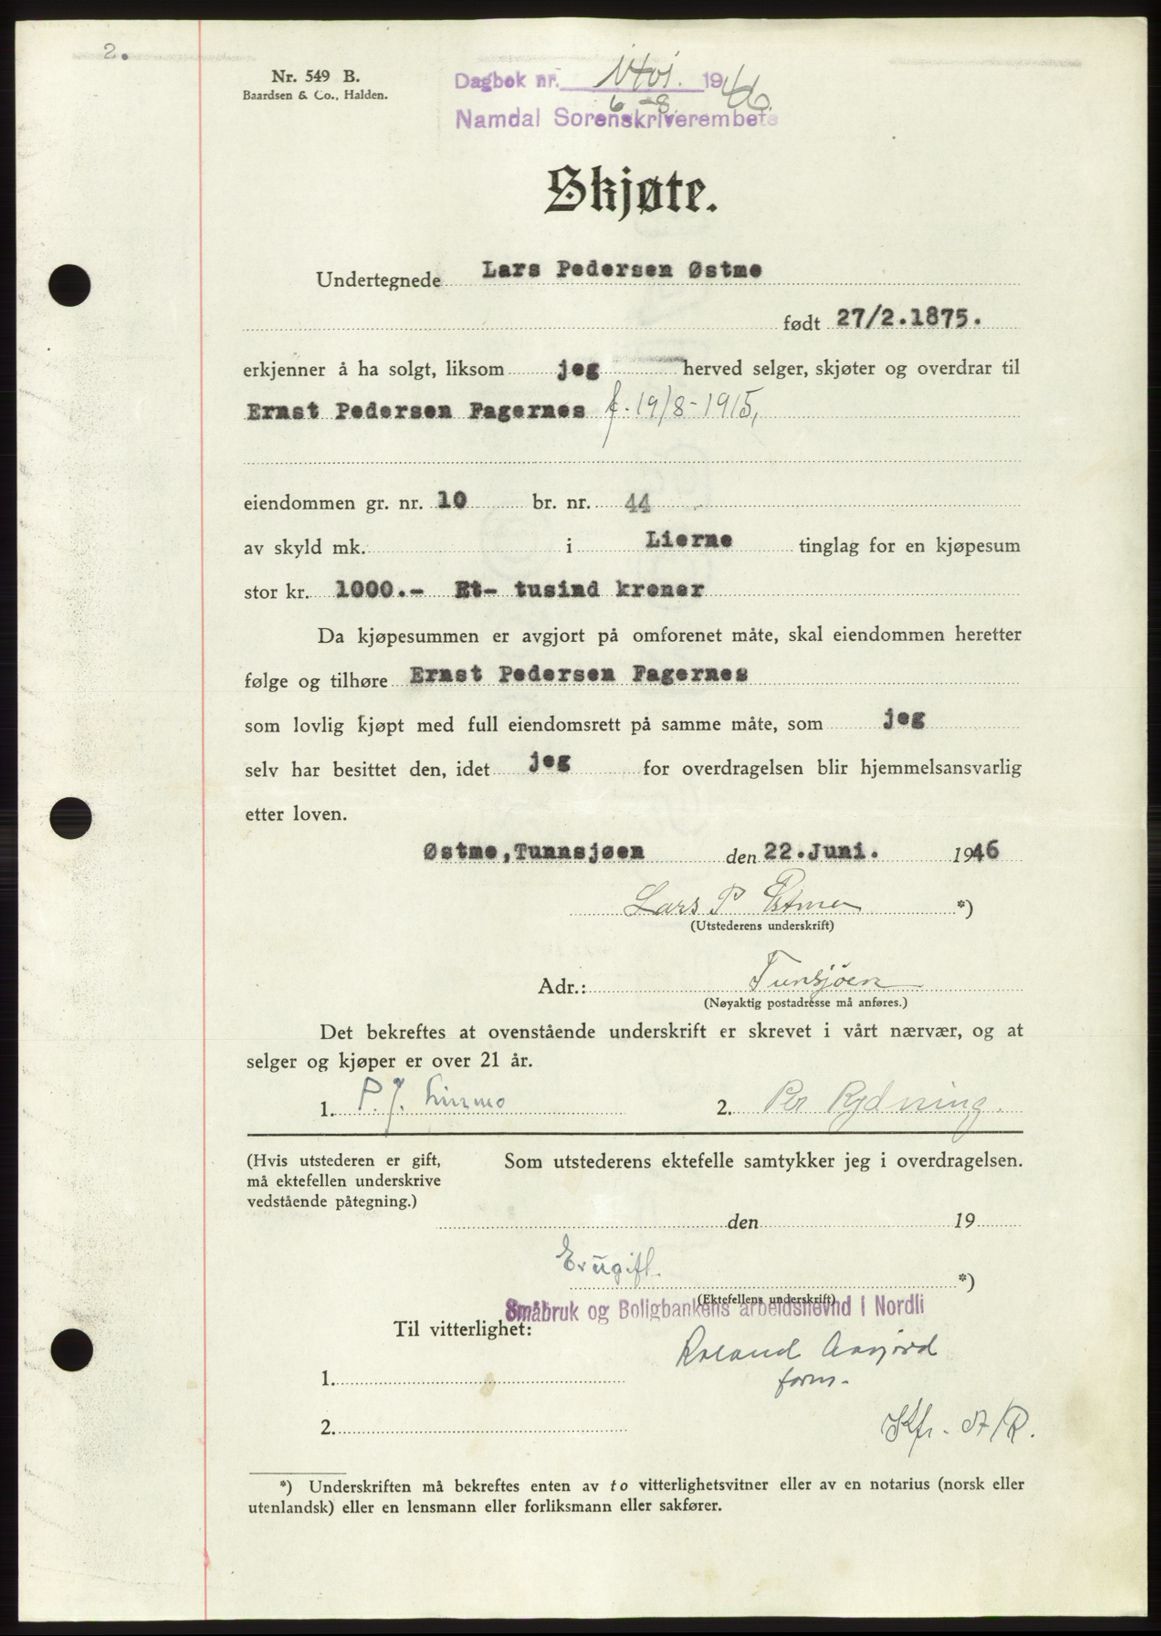 2.
Nr. 549 B.
Baardsen & Co., Halden.
Dagbok nr. 1401. 1946.
6-8
Namdal Sorenskriverembete
Skjøte.
Undertegnede Lars Pedersen Østmo
født 27/2.1875.
erkjenner å ha solgt, liksom jeg herved selger, skjøter og overdrar til
Ernst Pedersen Fagernes f. 19/8-1915,
eiendommen gr. nr. 10 br. nr. 44
av skyld mk. i Lierne tinglag for en kjøpesum
stor kr. 1000.- Et- tusind kroner
Da kjøpesummen er avgjort på omforenet måte, skal eiendommen heretter
følge og tilhøre Ernst Pedersen Fagernes
som lovlig kjøpt med full eiendomsrett på samme måte, som jeg
selv har besittet den, idet jeg for overdragelsen blir hjemmelsansvarlig
etter loven.
Østmo, Tunnsjøen den 22.Juni. 1946
Lars P Østmo *)
(Utstederens underskrift)
Adr.: Tunsjöen
(Nøyaktig postadresse må anføres.)
Det bekreftes at ovenstående underskrift er skrevet i vårt nærvær, og at
selger og kjøper er over 21 år.
1. P. J. Linmo 2. Per Rydning.
(Hvis utstederen er gift, Som utstederens ektefelle samtykker jeg i overdragelsen.
må ektefellen underskrive
vedstående påtegning.)
den 19
Er ugift. *)
(Ektefellens underskrift)
Småbruk og Boligbankens arbeidsnevnd i Nordli
Til vitterlighet:
Roland Aasjord
form.
1.
2.
Kfr. A/R.
*) Underskriften må bekreftes enten av to vitterlighetsvitner eller av en notarius (norsk eller
utenlandsk) eller en lensmann eller forliksmann eller sakfører.